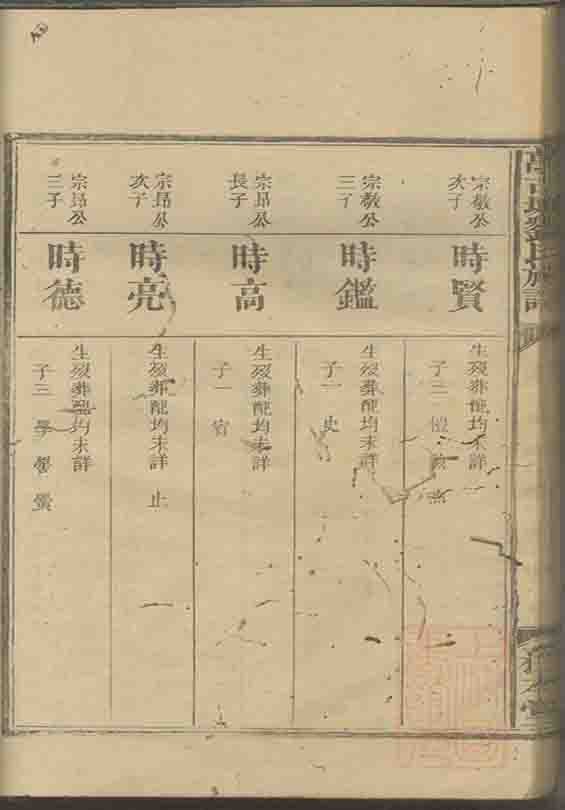 宗敬公
次子
時賢
生歿葬配均未詳
子三
宗敬公
三子
時鑑
生歿葬配均未詳
子一 史
宗昂公
長子
時高
生歿葬配均未詳
子一 官
宗昂公
次子
時亮
生歿葬配均未詳 止
宗昂公
三子
時德
生歿葬配均未詳
子三 學